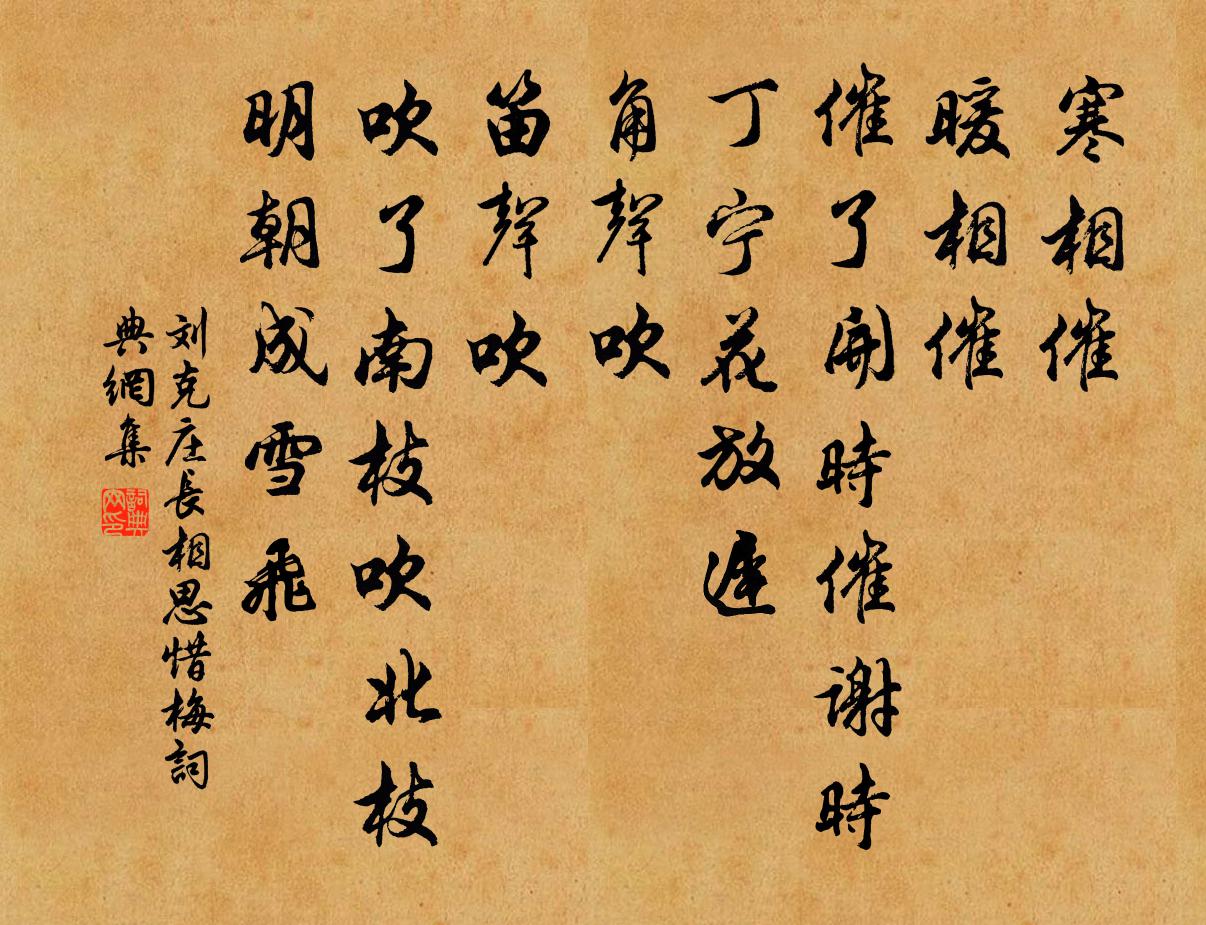 寒相催
暖相催
催了開時催謝時
丁宁花放遲
角聲吹
笛聲吹
吹了南枝吹北枝
明朝成雪飛
刘克庄長相思惜梅詞
典網集
詞典
网印